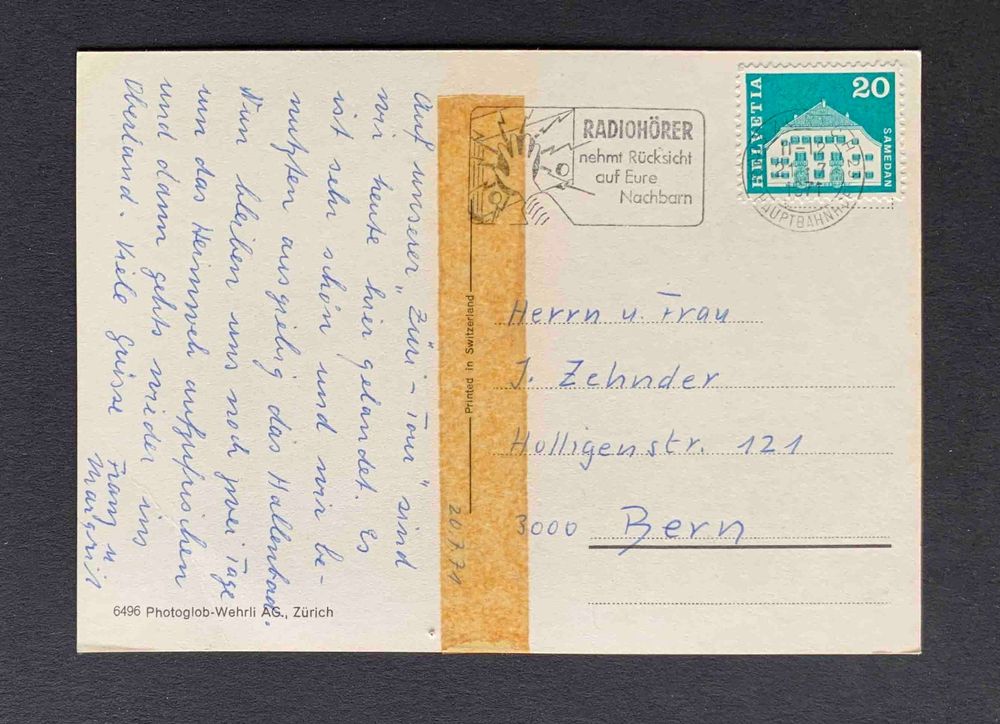 Auf unserer „Züri-Tour" sind
wir heute hier gelandet. Es
ist sehr schön und wir be-
nutzten ausgiebig das Hallenbad.
Nun bleiben uns noch zwei Tage
um das Heimweh aufzufrischen
und dann gehts wieder ins
Oberland. Viele Grüsse
Franz u
Margrit
20.7.71
6496 Photoglob-Wehrli AG., Zürich
Printed in Switzerland
RADIOHÖRER
nehmt Rücksicht
auf Eure
Nachbarn
HELVETIA
20
SAMEDAN
1971
HAUPTBAHNHOF
Herrn u Frau
J. Zehnder
Holligenstr. 121
3000 Bern